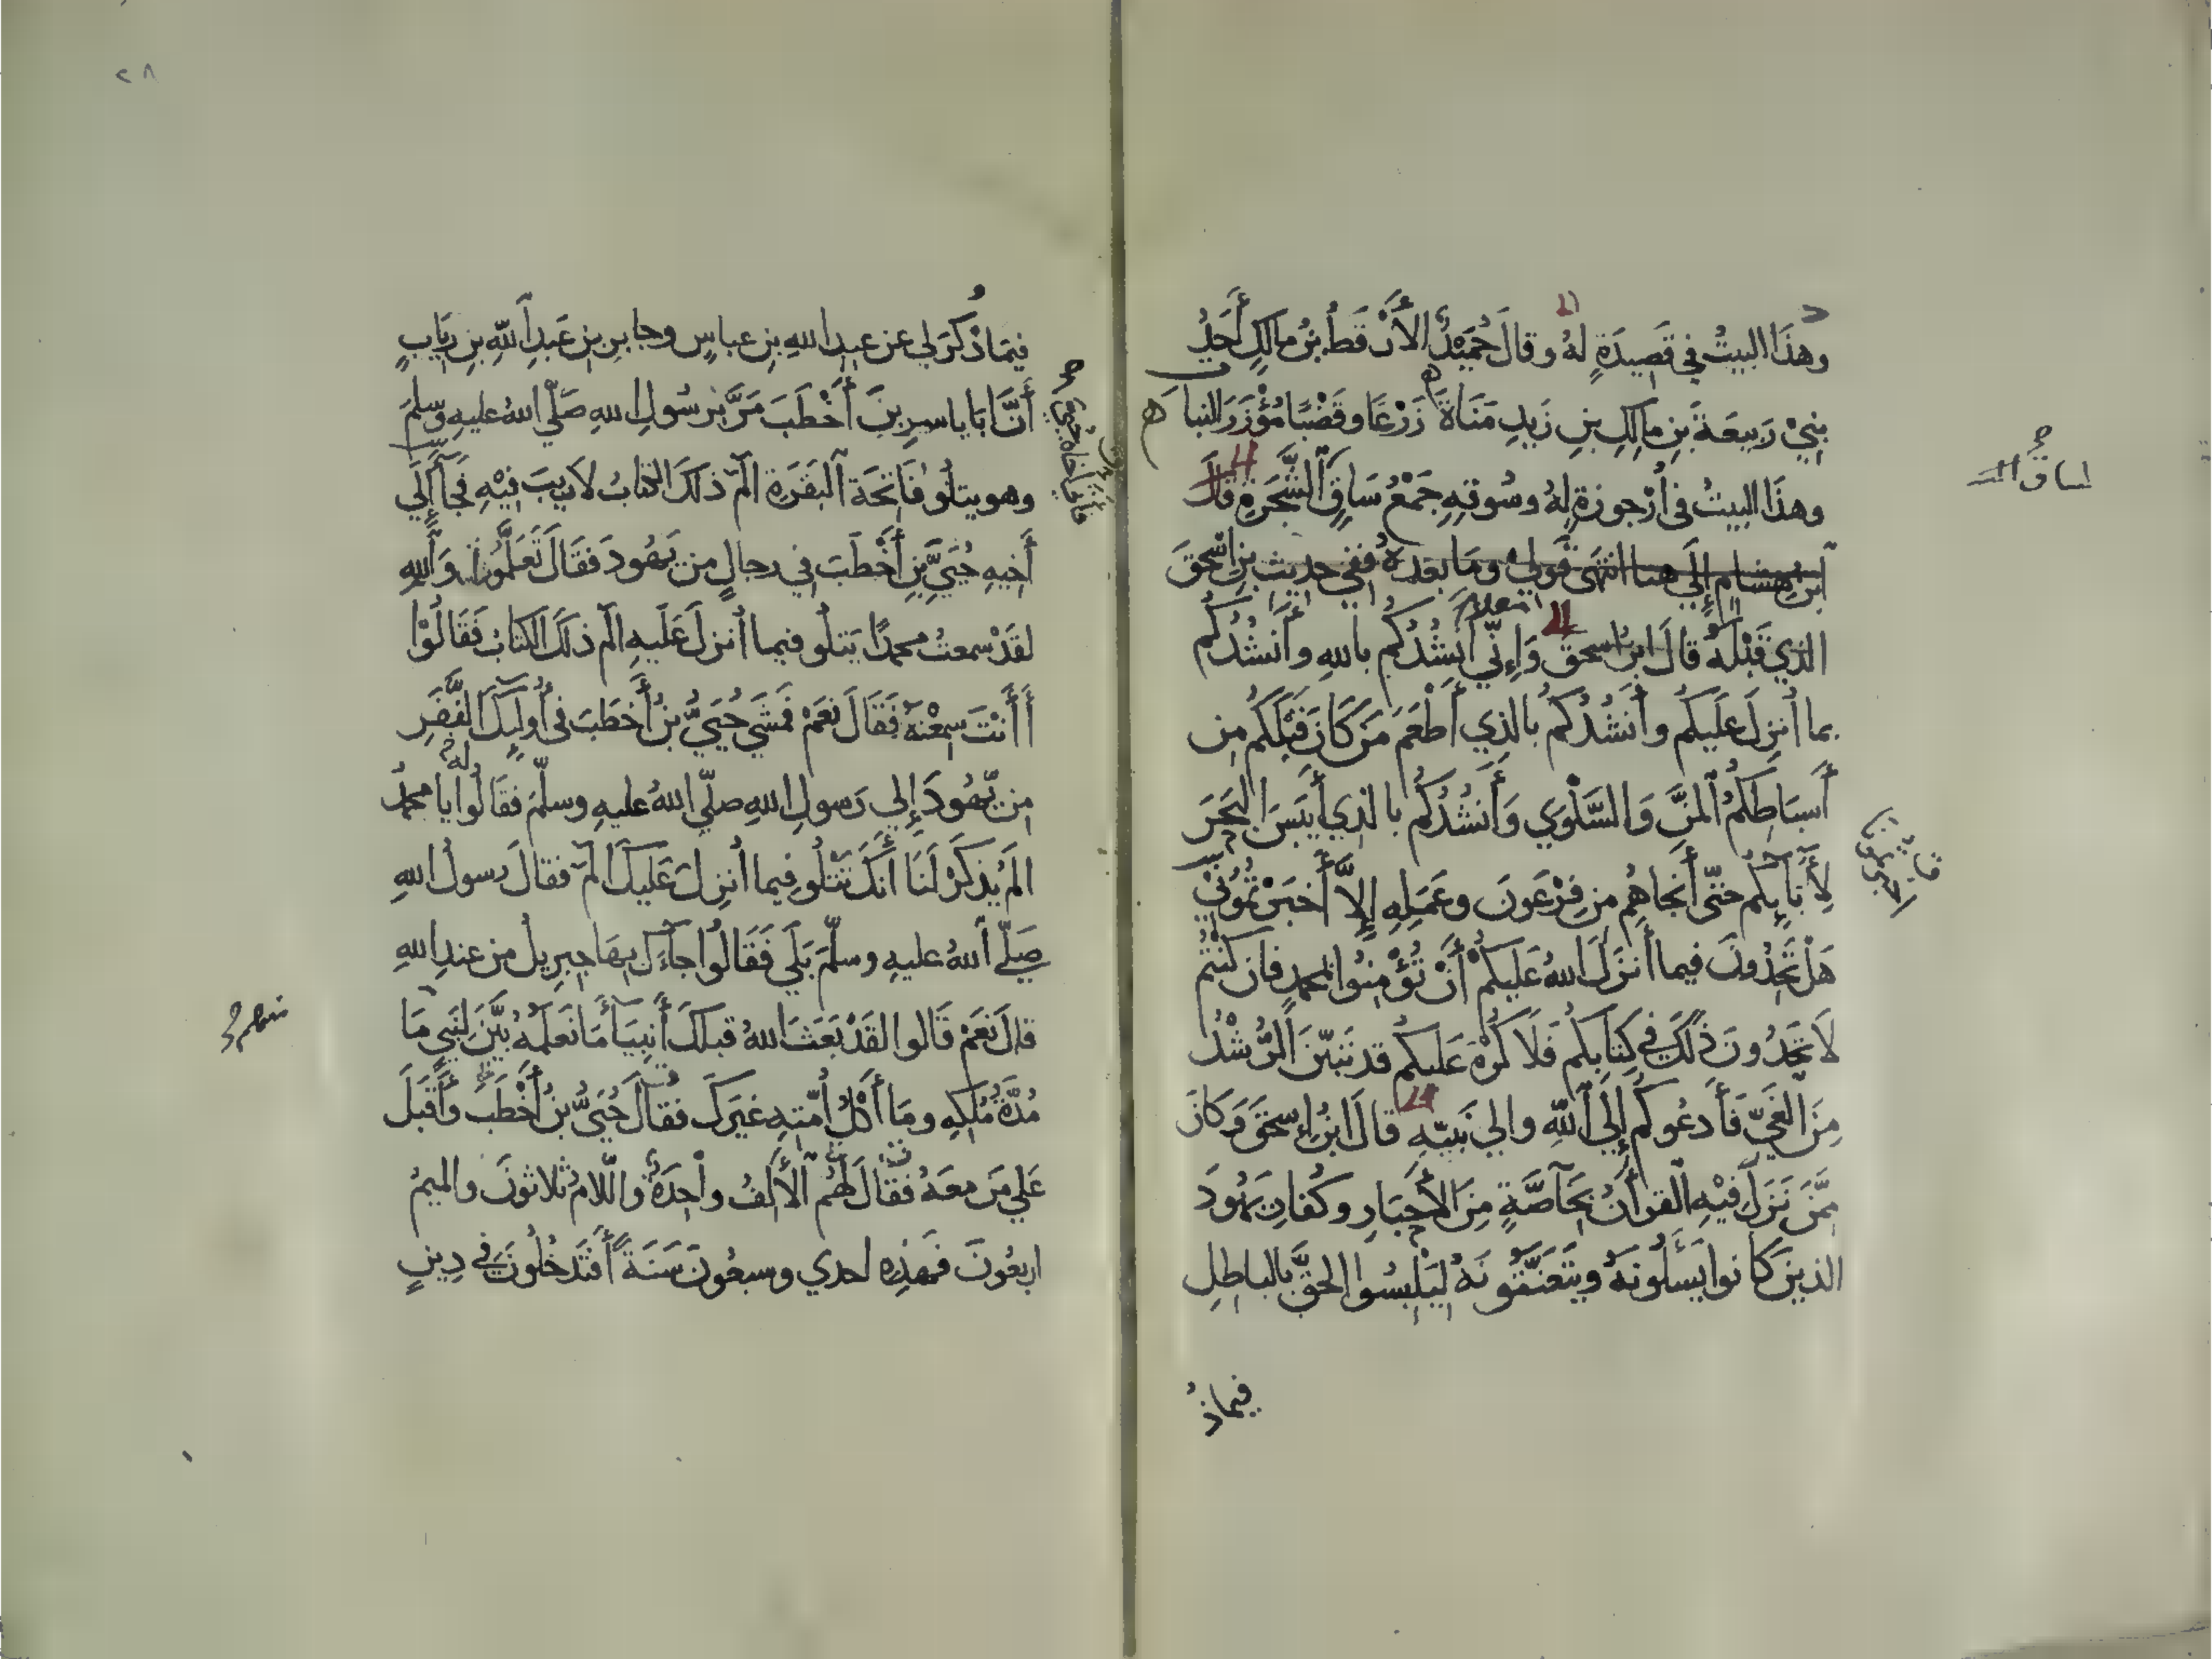 وهذَا البيتُ في قَصِيدَةٍ لهُ وقالَ حُمَيْدٌ الأَرْقَطُ بنُ مالكٍ أَحَدُ
بنِيْ رَبيعَةَ بَنِ مالكِ بنِ زَيدِ مَنَاةَ زَرْعًا وقَضْبًا مُؤْزَرَ النبات
وهذَا البيتُ في أُرْجوزةٍ لهُ وسُوقهِ جَمْعُ سَاقٍ لسَاقِ الشَّجَرَةِ قالَ
ابن هشام إلَي هنا انتهَى قولي ومَا بعدهُ ففي حديثِ بنِ اسحقَ
الذي قَبْلَهُ قالَ ابن اسحق وَإِنّي أَنْشُدُكُم باللهِ وأَنْشُدُكُم
بما أُنزِلَ علَيكُم وأَنشُدُكُم بالذي أَطْعَمَ مَن كَانَ قَبْلَكُم مِن
أَسبَاطِكُمُ المَنَّ وَالسَّلْوَي وَأَنشُدُكُم بالذِي أَيبَسَ البَحَرَ
لِأَبَائِكُم حَتّي أَنجاهُم مِن فِرْعَونَ وعَمَلِهِ إِلاَّ أَخبَرْتُمُونِيْ
هَلْ تَجِدُونَ فيما أَنزَلَ اللهُ عَليكُمْ أَنْ تُؤْمِنُوا بمحمدٍ فان كنتُم
لَا تَجِدُونَ ذلكَ في كتابِكُم فَلَا كُرْهَ عَليكُم قد تَبيّنَ الرُّشْدُ
مِنَ الغَيِّ فَأَدعُوكُم إِلَي اللهِ والي نَبيّهِ قالَ ابنُ إسحقَ وَكانَ
مِمَّن نَزَلَ فيْهِ القرأنُ بِخَآصَّةٍ مِنَ الأَحبَارِ وكُفارِ يَهُودَ
الذينَ كانوا يَسئَلُونَهُ ويتَعَنَّتُونَهُ لِيَلْبِسُوا الحقَّ بالباطِلِ
فيماذُ
٢٨
فيمَا ذُكرَ لي عن عبدِ اللهِ بنِ عباسٍ وجابرِ بنِ عَبدِ اللهِ بنِ رِيَابٍ
أنَّ ابَا ياسرِ بنَ أَخْطَبَ مَرَّ بِرَسُولِ اللهِ صَلّي اللهُ عليهِ وسلمَ
وهو يتلُو فَاتحَةَ البَقَرَةِ الَمّ ذلكَ الكتابُ لَا رَيبَ فيْهِ فجَآ إِلَي
أَخيهِ حُيَيِّ بْنِ أَخْطَبَ في رجالٍ من يَهُودَ فقَالَ تَعَلَّمُوا وَاللهِ
لقَدْ سمعتُ محمدًا يَتلُو فيما أُنزِلَ عَلَيهِ الَم ذلكَ الكتابُ فَقَالُوْا
أَأَنْتَ سمِعْتَهُ فقَالَ نعَمْ فمَشَي حُيَيُّ بنُ أَخطَبَ في أُولئِكَ النَّفَرِ
مِن يَّهُودَ إِلي رَسولِ اللهِ صلّي اللهُ عليهِ وسلّمَ فقَالُوا له يا محمدُ
الَمْ يُذكَرْ لَنَا أَنكَ تَتلُو فيما أُنزِلَ عَليكَ الَمّ فقالَ رسولُ اللهِ
صَلّي اللهُ عليهِ وسلّمَ بَلَي فَقَالُوا جآءَكَ بهَا جبرِيلُ من عندِ اللهِ
قالَ نَعَمْ قَالوا لقَدْ بَعَثَ اللهُ قبلَكَ أَنبِيَآءَ مَا نَعلَمُهُ بيَّنَ لنبِيٍّ مَا
مُدَّةُ مُلْكِهِ ومَا أُكُلُ أُمّتِهِ غيرَكَ فقَالَ حُيَيُّ بنُ أَخْطَبَ وأَقبَلَ
عَلي مَن معَهُ فقَالَ لَهُم الأَلفُ واحِدَةٌ واللّامُ ثلاثونَ والميمُ
اربعُونَ فهَذِهِ احدي وسبعُونَ سَنَةً أَفَتَدخُلُونَ في دِينٍ